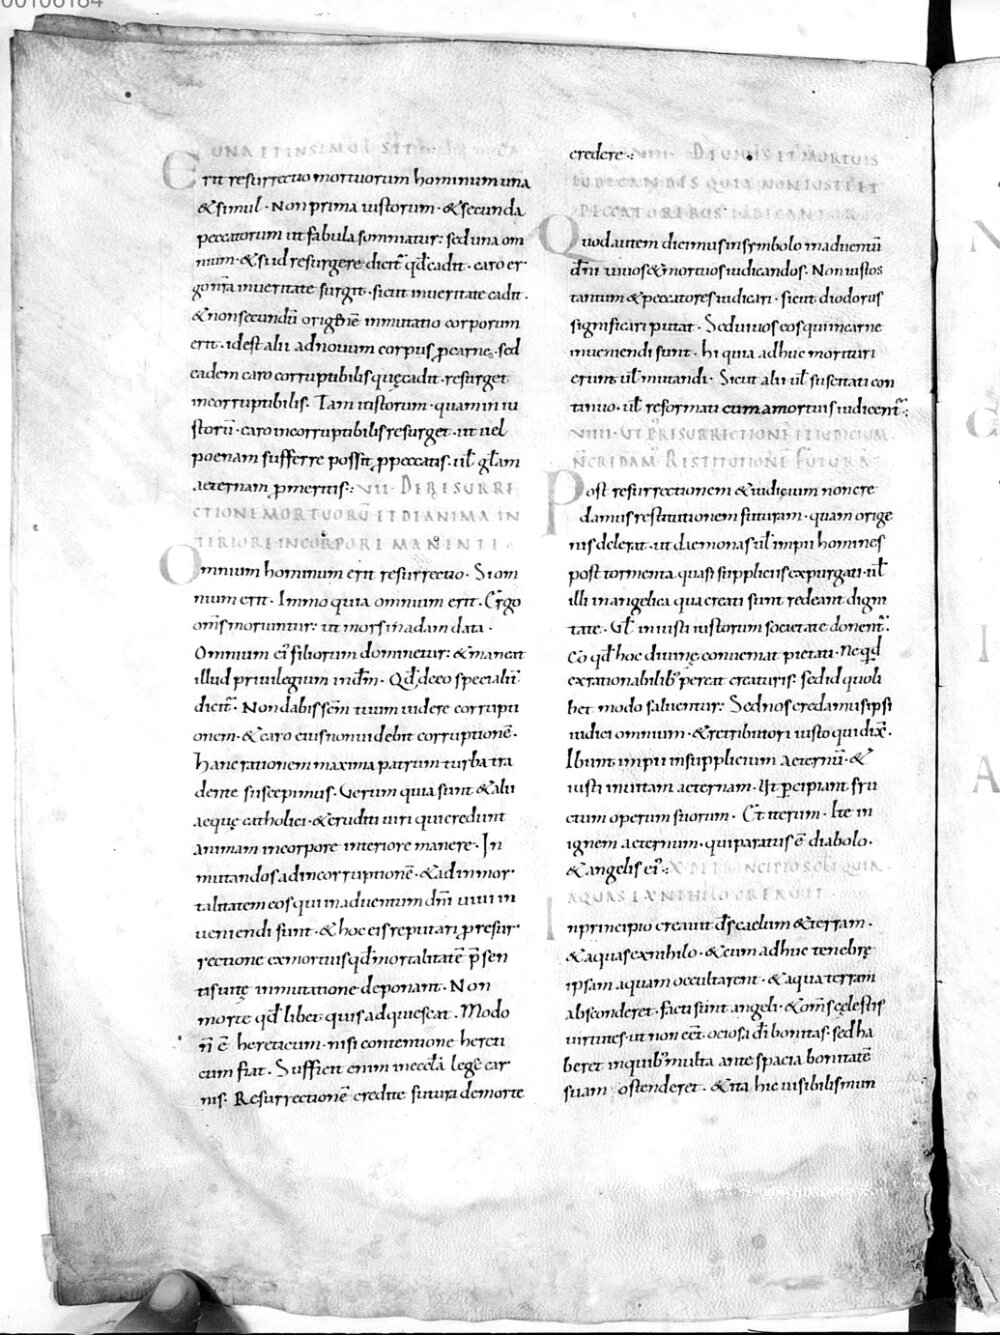 00106184
UNA ET INSIMUL SIT
Erit resurrectio mortuorum hominum una
& simul · Non prima iustorum · & secunda
peccatorum ut fabula somniatur : sed una om
nium · & si id resurgere dicit̄ qđ cadit · caro er
go nr̄a in veritate surgit · sicut in veritate cadit ·
& non secundū origenē inmutatio corporum
erit · id est aliud novum corpus p carne · sed
eadem caro corruptibilis quę cadit · resurget
incorruptibilis · Tam iustorum · quam in iu
storū · caro incorruptibilis resurget · ut vel
poenam sufferre possit p peccatis · ul̄ gl̄am
aeternam p meritis : VII · DE RESURRE
CTIONE MORTUORŪ ET DE ANIMA IN
TERIORE IN CORPORE MANENTE ·
Omnium hominum erit resurrectio · Si om
nium erit · Immo quia omnium erit · Ergo
om̄s moriuntur : ut mors in adam data ·
Omnium ei' filiorum dominetur : & maneat
illud privilegium in dn̄m · Qđ de eo specialit̄
dicit̄ · Non dabis sc̄m tuum videre corrupti
onem · & caro eius non videbit corruptionē ·
Hanc rationem maxima patrum turba tra
dente suscepimus · Verum quia sunt & alii
aeque catholici · & eruditi viri qui credunt
animam in corpore interiore manere · In
mutandos ad incorruptionē · & ad inmor
talitatem eos qui in adventum dn̄i vivi in
veniendi sunt · & hoc eis reputari p resur
rectione ex mortuis qđ mortalitatē p̄sen
tis vitę inmutatione deponant · Non
morte qđ libet quis adquiescat · Modo
n̄ ē hereticum · nisi contentione hereti
cum fiat · Sufficit enim in eccl̄a lege cre
nis · Resurrectionē credite futura de morte
credere : VIII · DE VIVIS ET MORTUIS
IUDICANDIS QUIA NON IUSTI ET
PECCATORIBUS IUDICANTUR
Quod autem dicimus in symbolo in adventū
dn̄i vivos & mortuos iudicandos · Non iustos
tantum & peccatores iudicari · sicut diodorus
significari putat · Sed vivos eos qui in carne
inveniendi sunt · hi quia adhuc morituri
erunt ul̄ mutandi · Sicut alii ul̄ suscitati con
tinuo · ul̄ reformati cum a mortuis iudicent̄ :
VIIII · UT P̄ RESURRECTIONĒ ET IUDICIUM
N̄ CREDAM' RESTITUTIONĒ FUTURĀ
Post resurrectionem & iudicium non cre
damus restitutionem futuram · quam orige
nis delerat · ut daemonas ul̄ impii homines
post tormenta quasi suppliciis expurgati · ul̄
illi in angelica qua creati sunt redeant digni
tate · Ul̄ iniusti iustorum societate donent̄ ·
Eo qđ hoc divinę conveniat pietati · Ne qđ
ex rationabilib' pereat creaturis · sed id quoli
bet modo salventur : Sed nos credamus ipsi
iudici omnium · & retributori iusto qui dix̄ ·
Ibunt impii in supplicium aeternū · &
iusti in vitam aeternam · Ut percipiant fru
ctum operum suorum · Et iterum · Ite in
ignem aeternum · qui paratus ē diabolo ·
& angelis ei' : X · DE PRINCIPIO
AQUAS EX NIHILO CREAVIT
In principio creavit d̄s caelum & terram ·
& aquas ex nihilo · & cum adhuc tenebrę
ipsam aquam occultarent · & aqua terram
absconderet · facti sunt angeli · & om̄s cęlestis
virtutes · ut non eēt ociosa dī bonitas · sed ha
beret in quib' multa ante spacia bonitatē
suam ostenderet · & ita hic visibilis mun